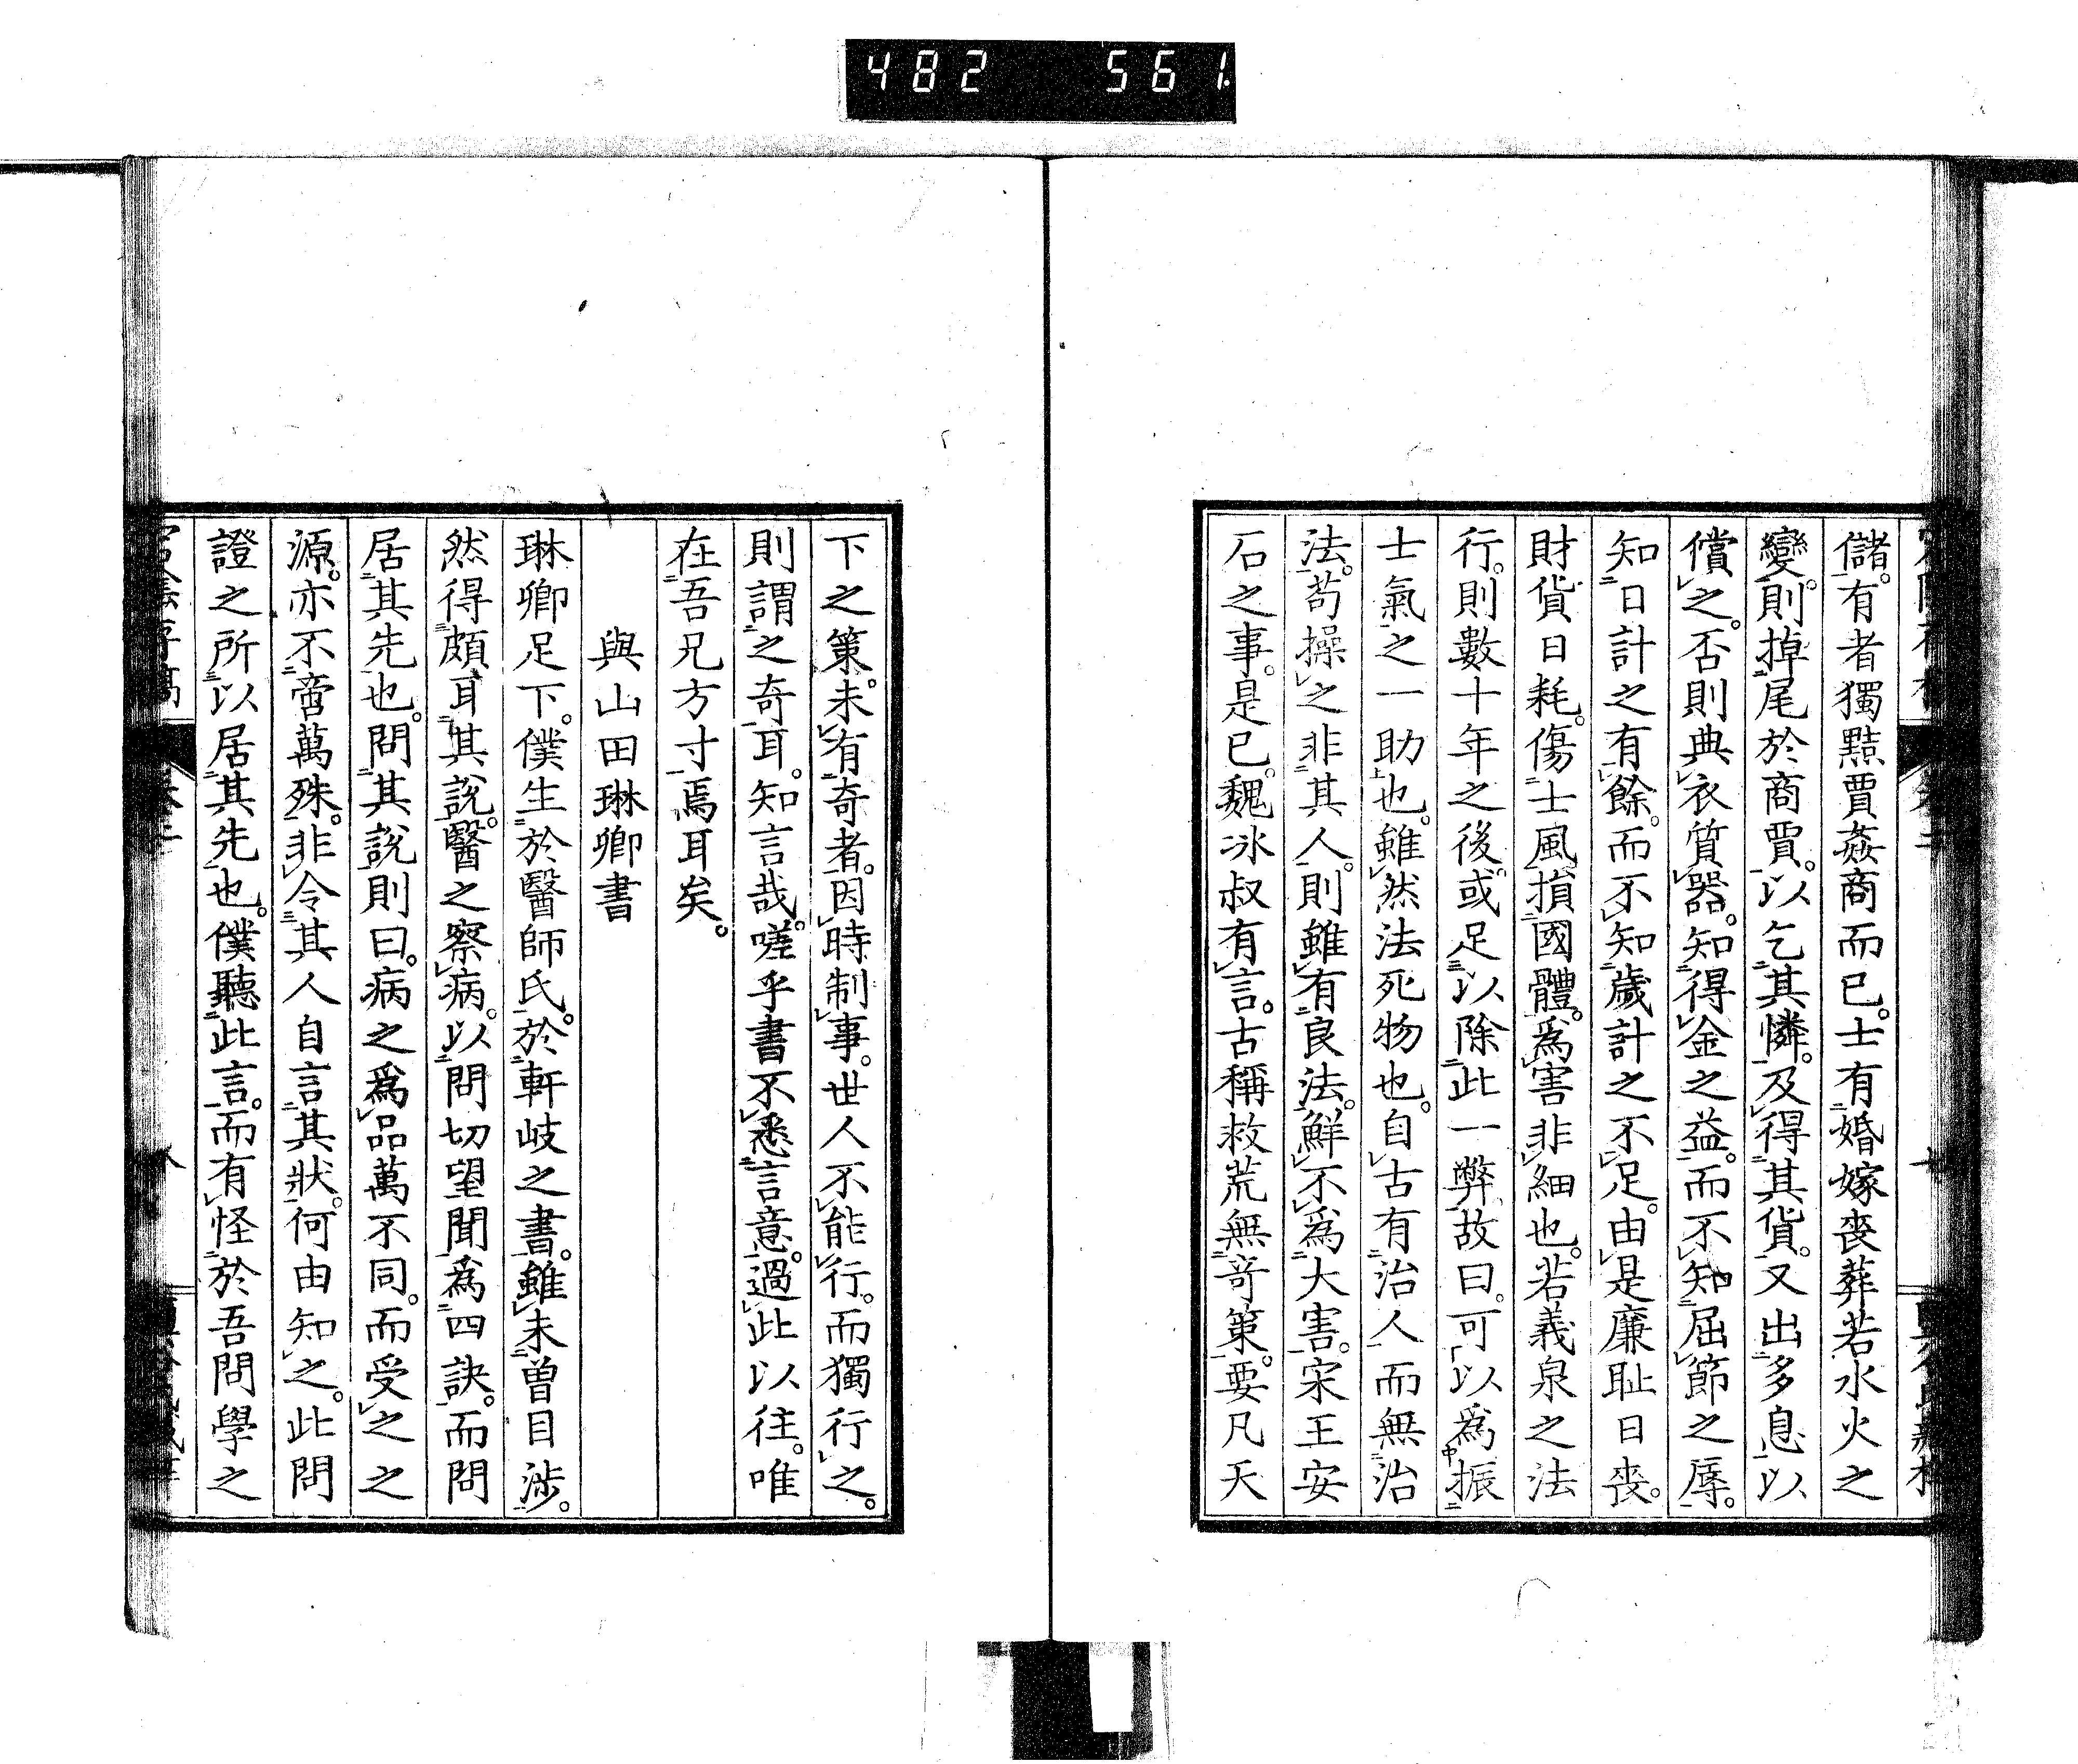 482 561
儲。有者獨黠賈姦商而已。士有婚嫁喪葬若水火之
變。則掉尾於商賈。以乞其憐。及得其貨。又出多息以
償之。否則典衣質器。知得金之益。而不知屈節之辱。
知日計之有餘。而不知歲計之不足。由是廉耻日喪。
財貨日耗。傷士風損國體。為害非細也。若義泉之法
行。則數十年之後。或足以除此一弊。故曰。可以為振
士氣之一助也。雖然法死物也。自古有治人而無治
法。苟操之非其人。則雖有良法。鮮不為大害。宋王安
石之事。是已。魏冰叔有言。古稱救荒無奇策。要凡天
下之策。未有奇者。因時制事。世人不能行。而獨行之。
則謂之奇耳。知言哉。嗟乎書不悉言意。過此以往。唯
在吾兄方寸焉耳矣。
與山田琳卿書
琳卿足下。僕生於醫師氏。於軒岐之書。雖未曽目渉。
然得頗耳其說。醫之察病。以問切望聞為四訣。而問
居其先也。問其說則曰。病之為品萬不同。而受之之
源。亦不啻萬殊。非令其人自言其狀。何由知之。此問
證之所以居其先也。僕聽此言。而有怪於吾問學之